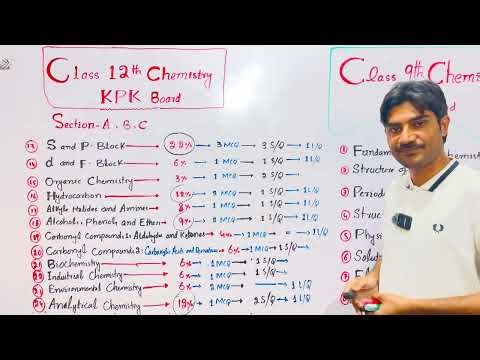 Class 12th Chemistry
KPK Board
Section-A.B.C
13 S and P-Block → → 3 MCQ → 3 S/Q → 1 L/Q
14 d and F-Block → 6% → 1 MCQ → 1 S/Q → 1 L/Q
15 Organic Chemistry → 3% → 1 MCQ → 2 S/Q →
16 Hydrocarbon → 12% → 3 MCQ → 1 S/Q → 1 L/Q
17 Alkyle Halides and Amines → 8% → 1 MCQ → 2 S/Q → 1 L/Q
18 Alcohols, Phenols and Ethers → 9% → 2 MCQ → 1 S/Q → 1 L/Q
19 Carbonyl Compounds 1: Aldehydes and Ketones → 4% → 1 MCQ → = → 1 L/Q
20 Carbonyl Compounds 2: Carboxylic Acids and → 6% → 1 MCQ → 1 S/Q →
21 Biochemistry → 6% → 1 MCQ → 1 S/Q
22 Industrial Chemistry → 6% → 1 MCQ → 1 S/Q
23 Environmental Chemistry → 6% → 2 MCQ → → 1 L/Q
24 Analytical Chemistry → → 1 MCQ → 2 S/Q → 1 L/Q
Class 9th Chem
1 Fundam chemist
2 Structure of
3 Period
4 Struct
5 Physi
6 Solut